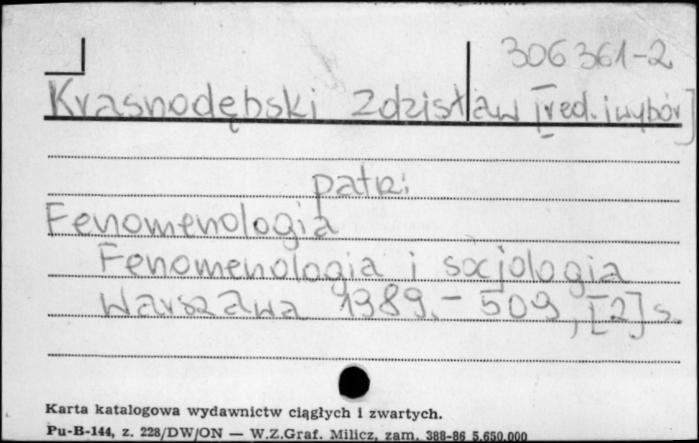 306361-2
Krasnodębski Zdzisław [red. i wybór]
patrz:
Fenomenologia
Fenomenologia i socjologia
Warszawa 1989. - 509, [2] s.
Karta katalogowa wydawnictw ciągłych i zwartych.
Pu-B-144, z. 228/DW/ON — W.Z.Graf. Milicz, zam. 388-86 5.650.000